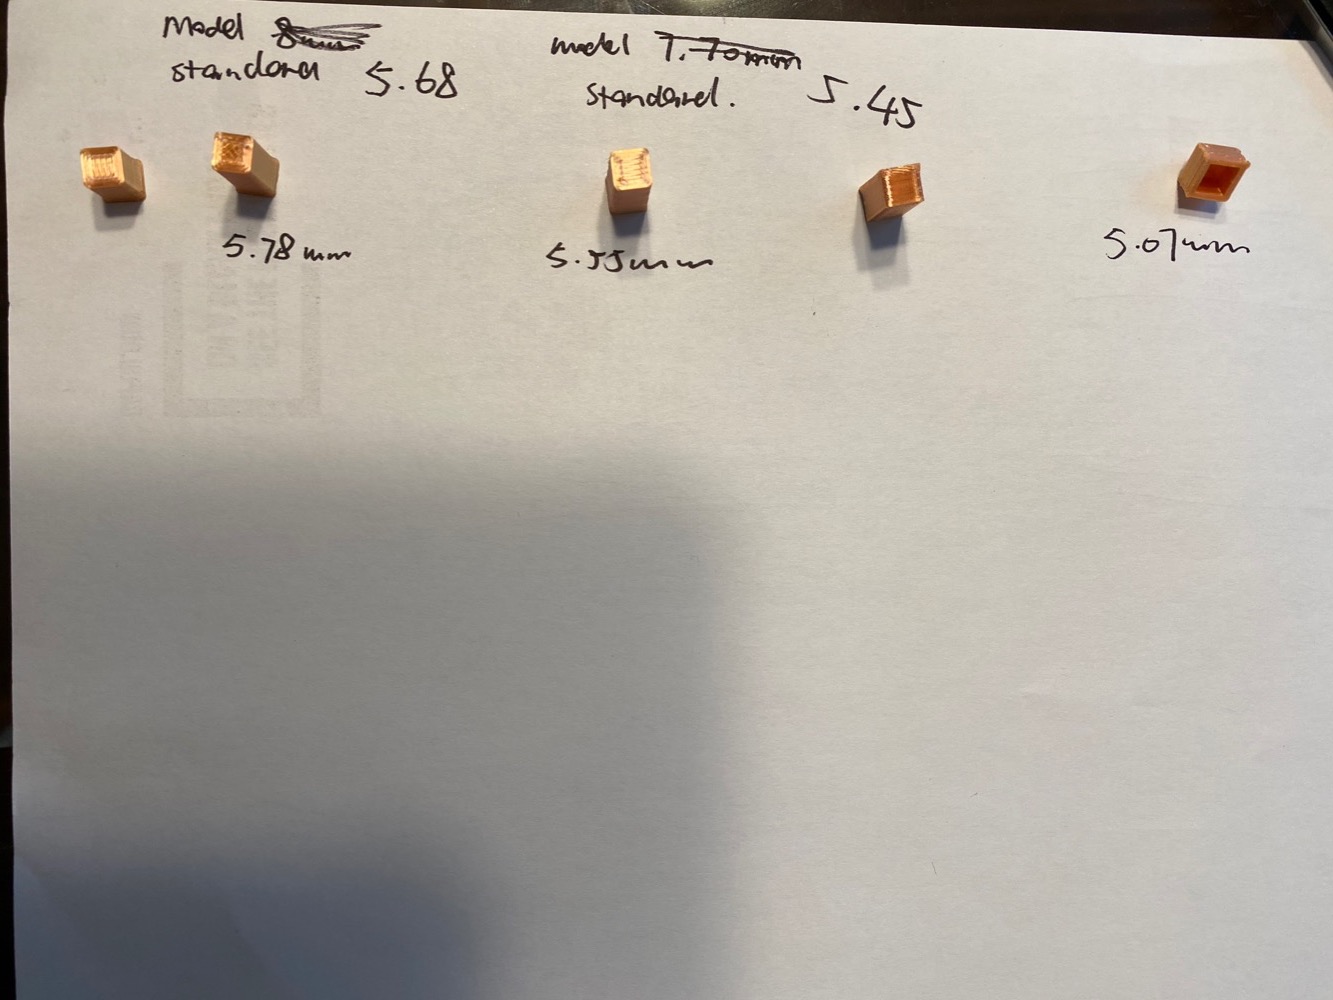 Model 8mm
standard 5.68
model 7.70mm
standard. 5.45
5.78mm
5.55mm
5.07mm